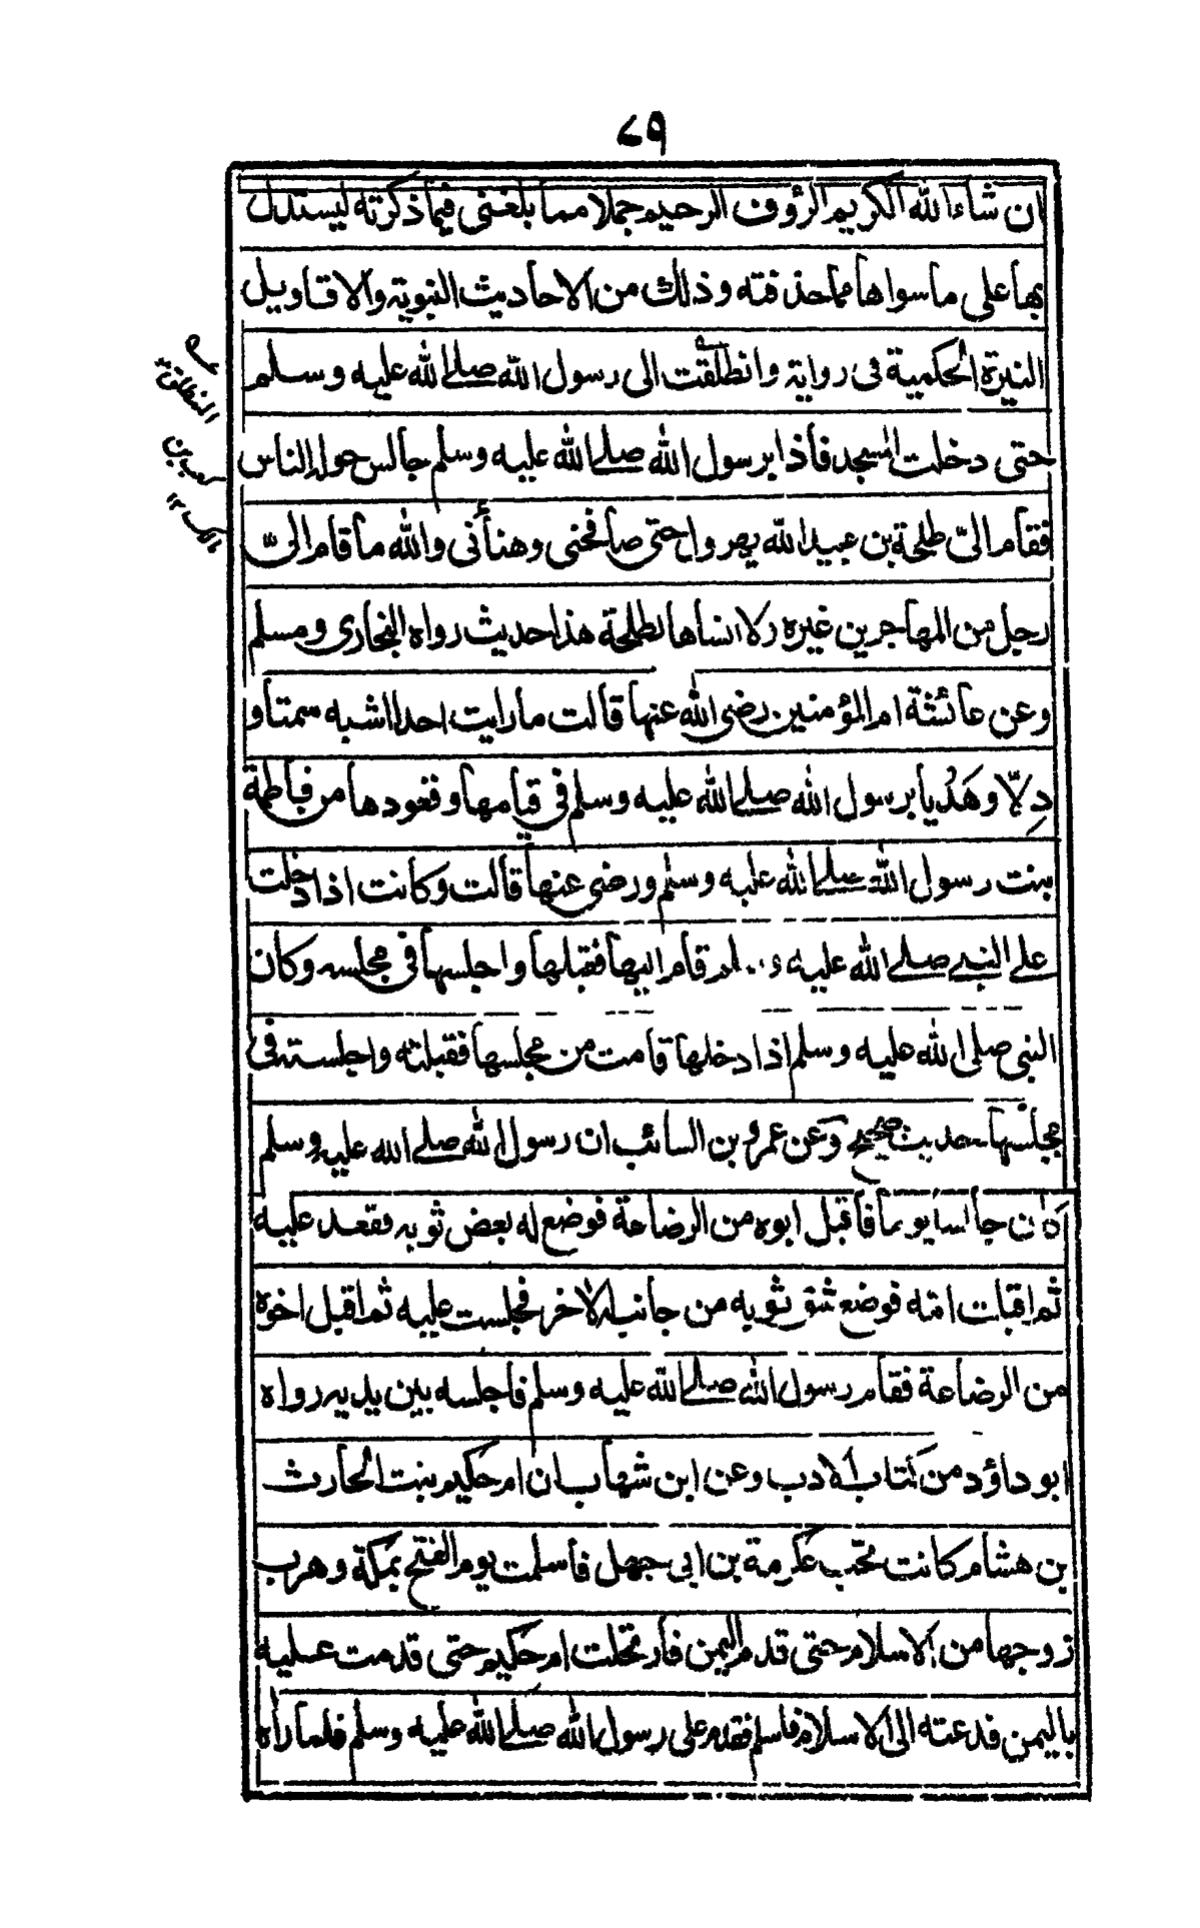 ٧٩
ان شاء الله الكريم الرؤوف الرحيم جملا مما بلغنى فيما ذكرته ليستدل
بها على ما سواها مما حذفته وذلك من الاحاديث النبوية والاقاويل
النيرة الحكمية فى رواية وانطلقت الى رسول الله صلے الله عليه وسلم
حتى دخلت المسجد فاذا برسول الله صلے الله عليه وسلم جالس حوله الناس
فقام الىّ طلحة بن عبيد الله يهرول حتى صافحنى وهنأنى والله ما قام الىّ
رجل من المهاجرين غيره ولا انساها لطلحة هذا حديث رواه البخارى ومسلم
وعن عائشة ام المؤمنين رضى الله عنها قالت ما رايت احدا اشبه سمتا و
دِلّا وهَدْيا برسول الله صلے الله عليه وسلم فى قيامها وقعودها من فاطمة
بنت رسول الله صلے الله عليه وسلم ورضى عنها قالت وكانت اذا دخلت
على النبے صلے الله عليه وسلم قام اليها فقبلها واجلسها فى مجلسه وكان
النبى صلى الله عليه وسلم اذا دخلها قامت من مجلسها فقبلته واجلسته فى
مجلسها حديث صحيح وعن عمرو بن السائب ان رسول الله صلے الله عليه وسلم
كان جالسا يوما فاقبل ابوه من الرضاعة فوضع له بعض ثوبه فقعد عليه
ثم اقبلت امه فوضع شق ثوبه من جانبه الاخر فجلست عليه ثم اقبل اخوه
من الرضاعة فقام رسول الله صلے الله عليه وسلم فاجلسه بين يديه رواه
ابو داؤد من كتاب الادب وعن ابن شهاب ان ام حكيم بنت الحارث
بن هشام كانت تحت عكرمة بن ابى جهل فاسلمت يوم الفتح بمكة وهرب
زوجها من الاسلام حتى قدم اليمن فارتحلت ام حكيم حتى قدمت عليه
باليمن فدعته الى الاسلام فاسلم فقدم على رسول الله صلے الله عليه وسلم فلما راٰه
المنطلق
كعب بن
مالك ١٢